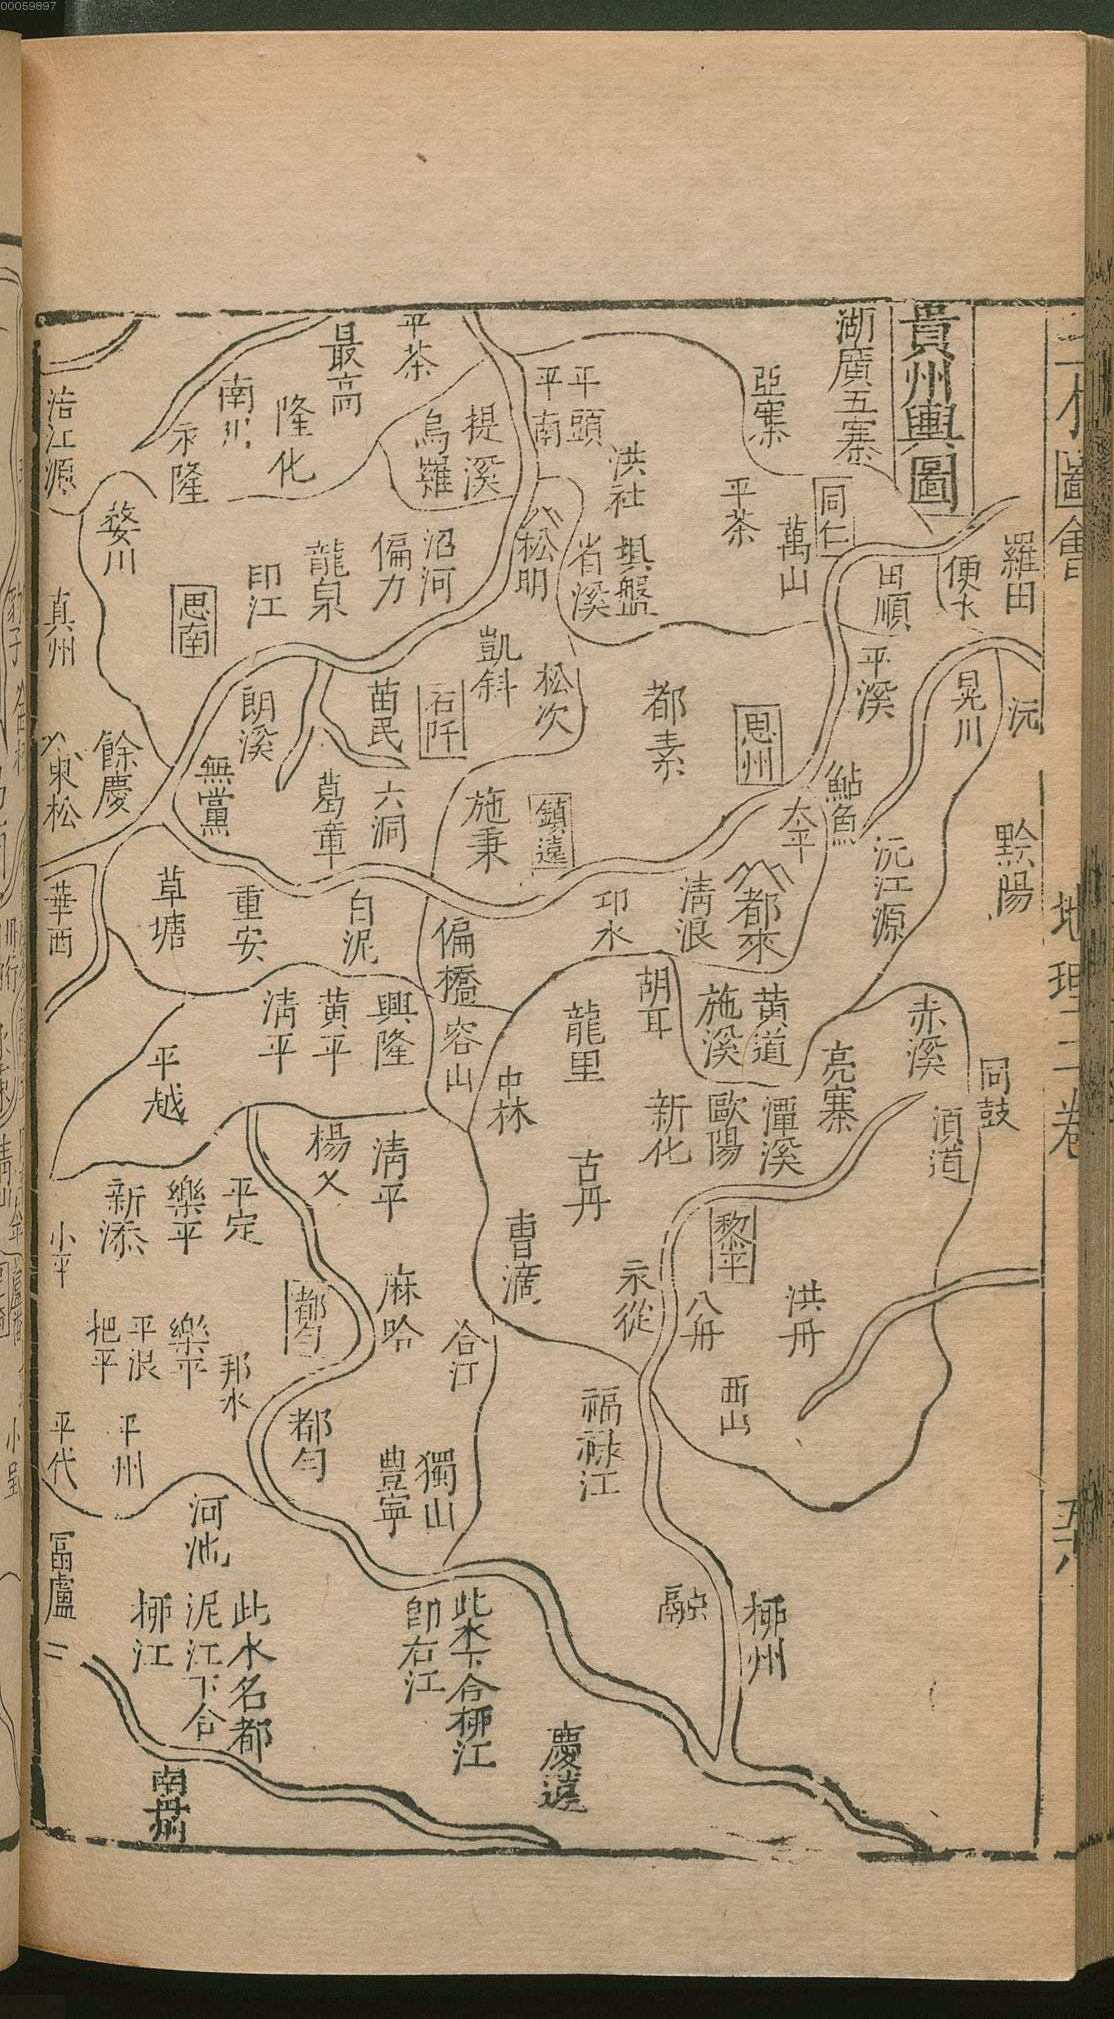 00059897
圖會
地理二卷
貴州輿圖
湖廣五寨
亞寨
同仁
萬山
平茶
羅田
便水
田順
平溪
晃川
沅
鮎魚
沅江源
黔陽
平茶
最高
南川
隆化
永隆
烏羅
提溪
平頭
平南
洪社
省溪
松明
沿河
偏刀
龍泉
印江
思南
婺川
真州
涪江源
凱斜
松次
都素
思州
太平
石阡
苗民
朗溪
無黨
餘慶
東松
葛章
六洞
施秉
鎮遠
草塘
重安
白泥
華西
偏橋
卭水
清浪
都來
胡耳
施溪
黃道
赤溪
同鼓
亮寨
潭溪
歐陽
新化
龍里
容山
中林
興隆
黃平
清平
平越
楊义
清平
古丹
曹滴
湏道
黎平
洪舟
八舟
永從
西山
福祿江
新添
樂平
平定
小平
都勻
麻哈
合江
樂平
平浪
把平
邦水
都勻
平州
平代
獨山
豐寧
河池
此水名都
泥江下合
桺江
此水下合桺江
即右江
融
桺州
慶遠
南丹州